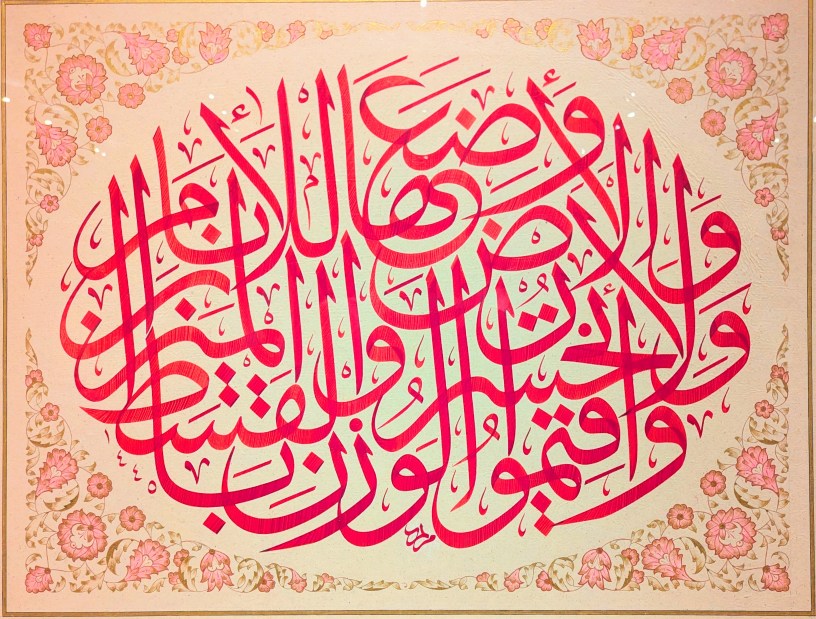 وأقيموا الوزن بالقسط
ولا تخسروا الميزان
والأرض وضعها للأنام
١٤٤٥